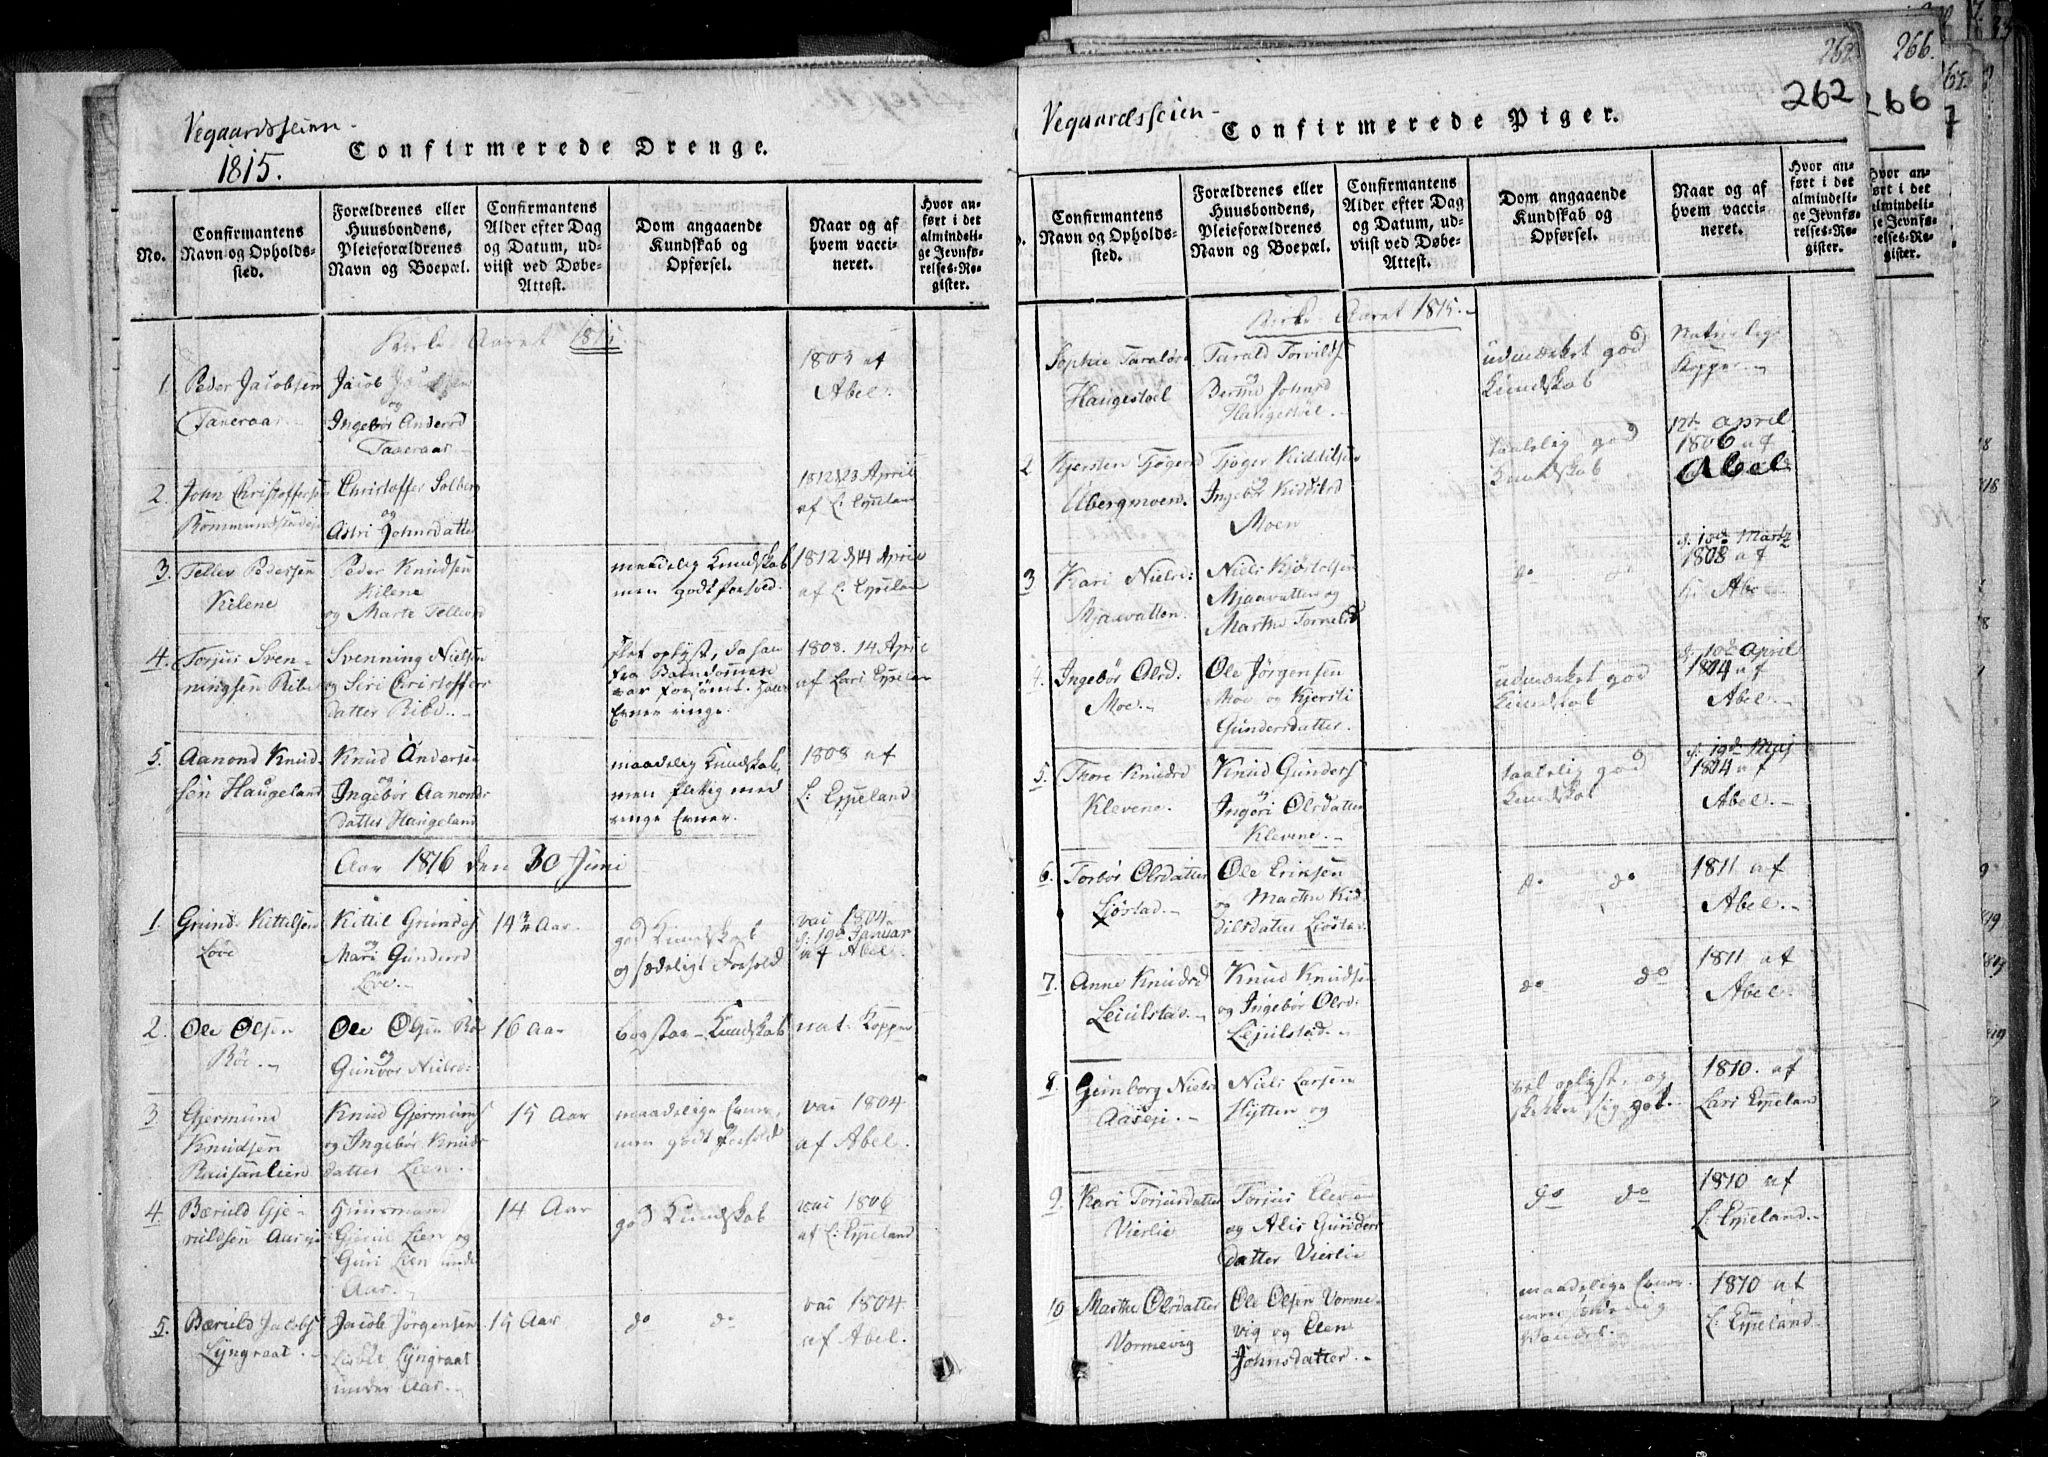 Vegaardsheien
1815.
Confirmerede Drenge.
No.
Confirmantens
Navn og Opholds-
sted.
Forældrenes eller
Huusbondens,
Pleieforældrenes
Navn og Boepæl.
Confirmantens
Alder efter Dag
og Datum, ud-
viist ved Døbe-
Attest.
Dom angaaende
Kundskab og
Opførsel.
Naar og af
hvem vacci-
neret.
Hvor an-
ført i det
almindeli-
ge Jevnfø-
relses-Re-
gister.
Kirke Aaret 1815
1.
Peder Jacobsen
Jacob
og
Ingebor Anders
1803 af
Abel.
2.
John Christoffersen
Christoffer Solberg
og
Astri Johnsdatter
1812 d 23 April
af L. Eppeland
3.
Tellev Pedersen
Kilene
Peder Knudsen
Kilene
og Marte Tellevsd
maadelig Kundskab
men godt forhold.
1812 d 14 April
af L. Eppeland
4.
Torjus Sven-
ningsen Ribe
Svenning Nielsen
og Siri Christoffers
datter Ribe.
slet oplyst, da han
fra Barndommen
var forsømt.
Evner ringe.
1808. 14. April
af Lars Eppeland
5.
Aanond Knud-
sen Haugeland
Knud Andersen
og
Ingebor Aanonds
datter Haugeland
maadelig Kundskab,
men flittig med
ringe Evner.
1808 af
L: Eppeland
Aar 1816 den 30 Juni
1.
Kittelsen
Love
Kittil
og
Mari Gundersd
Love.
14 Aar
god Kundskab
og sædeligt Forhold
vac 1804
d: 19de Januar
af Abel.
2.
Ole Olsen
Röe.
Ole Olsen Röe
og
Gunvor Nielsd:
16 Aar
Kundskab
nat. Kopper
3.
Gjermund
Knudsen
Knud Gjermunds
og Ingebor Knuds
datter Lien.
15 Aar
maadelige Evner
men godt forhold
vac 1804
af Abel.
4.
Bæruld Gje-
ruldsen
Huusmand
Gjerul Lien og
Guri Lien under
Aas.
14 Aar
god Kundskab
vac 1806
af L: Eppeland
5.
Bæruld Jacobs
Lyngraat.
Jacob Jörgensen
Lisbet Lyngraat
under Aas.
15 Aar
do do
vac 1804
af Abel.
Vegaardsheien
Confirmerede Piger.
262
266.
262
266
Confirmantens
Navn og Opholds-
sted.
Forældrenes eller
Huusbondens,
Pleieforældrenes
Navn og Boepæl.
Confirmantens
Alder efter Dag
og Datum, ud-
viist ved Døbe-
Attest.
Dom angaaende
Kundskab og
Opførsel.
Naar og af
hvem vacci-
neret.
Hvor an-
ført i det
almindeli-
ge Jevnfø-
relses-Re-
gister.
Kirke Aaret 1815.
Sophie Taralds
Haugestöel
Tarald Torvilds
og
Berthe Johnsd
Haugestöel.
udmærket god
Kundskab
Naturlige
Kopper.
2
Kjersten Tjögersd
Ubergmoen.
Tjöger Kiddilsen
og
Ingebor Kiddilsd
Moen
taalelig god
Kundskab
12te April
1806 af
Abel
3
Kari Nielsd:
Mjaavatten.
Niels Kjöstolsen
Mjaavatten og
Marthe
do do
d: 10de Martz
1808 af
Abel
4.
Ingebör Olsd.
Moe.
Ole Jörgensen
Moe og Kjersti
Gundersdatter
udmærket god
Kundskab
d: 10de April
1804 af
Abel.
5.
Thore Knudsd
Klevene.
Knud Gunders
og
Ingeri Olsdatter
Klevene.
taalelig god
Kundskab
d: 19de Maj
1804 af
Abel.
6.
Torbör Olsdatter
Ljöstad.
Ole Ericksen
og Marthe Kid
dilsdatter Ljöstad
do do
1811 af
Abel.
7.
Anne Knudsd
Lejulstad.
Knud Knudsen
og Ingebör Olsd:
Lejulstad.
do do
1811 af
Abel.
8.
Gunborg Niels
Niels Larsen
Hytten og
vel oplyst, og
skikker sig godt.
1810. af
Lars Eppeland
9.
Kari Torjusdatter
Vierlie
Torjus
og Alis Gunders
datter Vierlie
do do
1810 af
L: Eppeland.
10
Marthe Olsdatter
Vormevig
Ole Olsen Vorme-
vig og Elen
Johnsdatter.
maadelige Evner
1810 af
L. Eppeland.